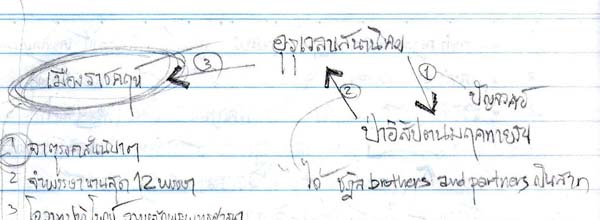 อุรุเวลาเสนานิคม
③
เมืองราชคฤห์
①
ปัญจวคีย์
②
ป่าอิสิปตนมฤคทายวัน
1 จาตุรงคสันนิบาต
"ได้ ชฎิล brothers and partners เป็นสาวก
2 จำพรรษานานสุด 12 พรรษา
3